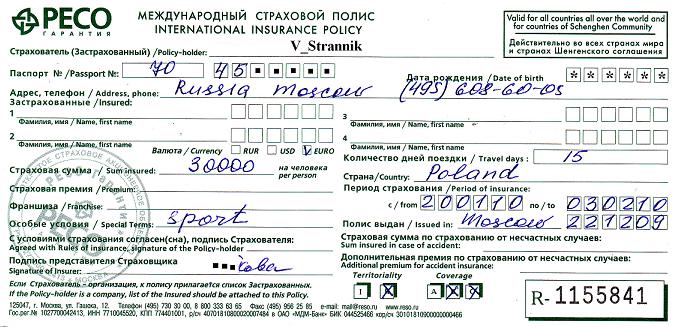 РЕСО ГАРАНТИЯ
МЕЖДУНАРОДНЫЙ СТРАХОВОЙ ПОЛИС
INTERNATIONAL INSURANCE POLICY
Valid for all countries all over the world and for countries of Schenghen Community
Действительно во всех странах мира и странах Шенгенского соглашения
Страхователь (Застрахованный) /Policy-holder: V_Strannik
Паспорт № /Passport №: 70 45
Дата рождения / Date of birth * * * * * *
Адрес, телефон / Address, phone: Russia Moscow (495) 608-60-05
Застрахованные / Insured:
1
Фамилия, имя / Name, first name
3
Фамилия, имя / Name, first name
2
Фамилия, имя / Name, first name
4
Фамилия, имя / Name, first name
Валюта / Currency RUR USD V EURO
Количество дней поездки / Travel days: 15
Страховая сумма / Sum insured: 30000 на человека per person
Страна/Country: Poland
Страховая премия / Premium:
Период страхования / Period of insurance:
Франшиза / Franchise:
с / from 200110 по / to 030210
Особые условия / Special Terms: Sport
Полис выдан / Issued in: Moscow 221209
С условиями страхования согласен(сна), подпись Страхователя:
Agreed with Rules of insurance, signature of the Policy-holder
Страховая сумма по страхованию от несчастных случаев:
Sum insured in case of accident:
Подпись представителя Страховщика
Signature of Insurer: кова
Дополнительная премия по страхованию от несчастных случаев:
Additional premium for accident insurance:
Territoriality Coverage
I X A X
Если Страхователь - организация, к полису прилагается список Застрахованных.
If the Policy-holder is a company, list of the Insured should be attached to this Policy.
R- 1155841
125047, г. Москва, ул. Гашека, 12. Телефоны: (495) 730 30 00, 8 800 333 63 65 Факс: (495) 956 25 85 e-mail: mail@reso.ru www.reso.ru
Гос.рег.№ 1027700042413, ИНН 7710045520, КПП 774401001, р/с 40701810800020007484 в ОАО «МДМ-Банк» БИК 044525466 кор/с 30101810900000000466